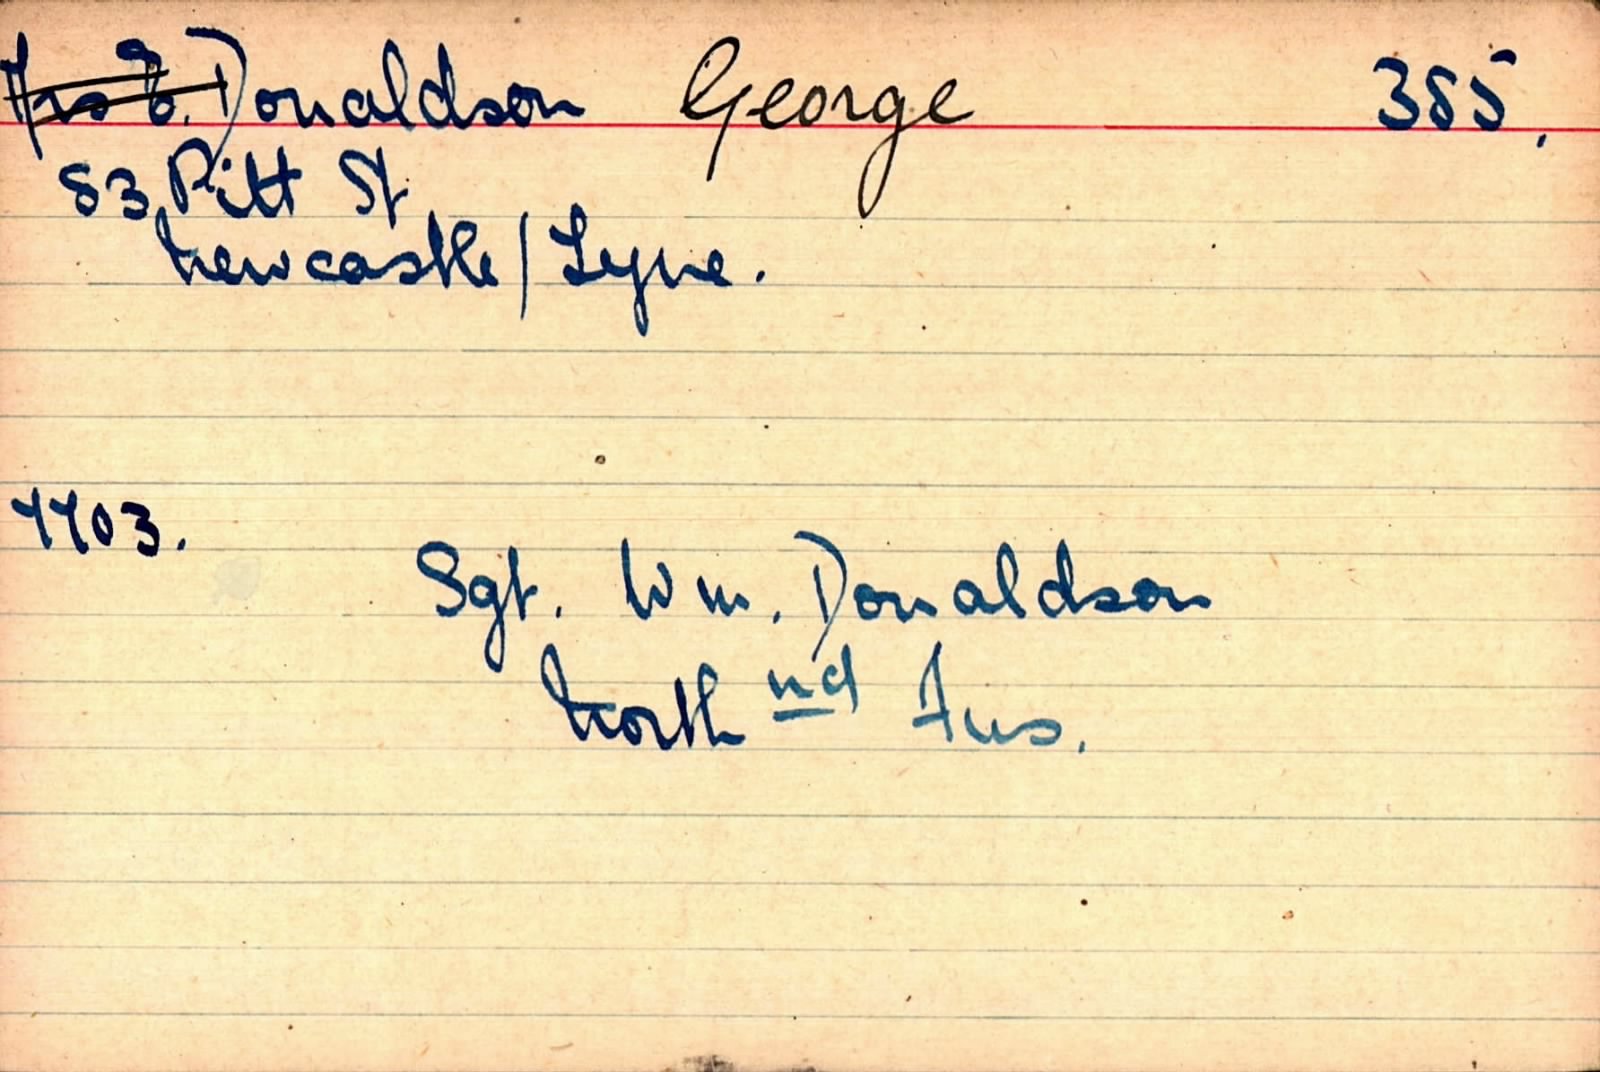 Mrs E. Donaldson George 385.
83, Pitt St
Newcastle/Tyne.
7703.
Sgt. Wm. Donaldson
North nd Fus.